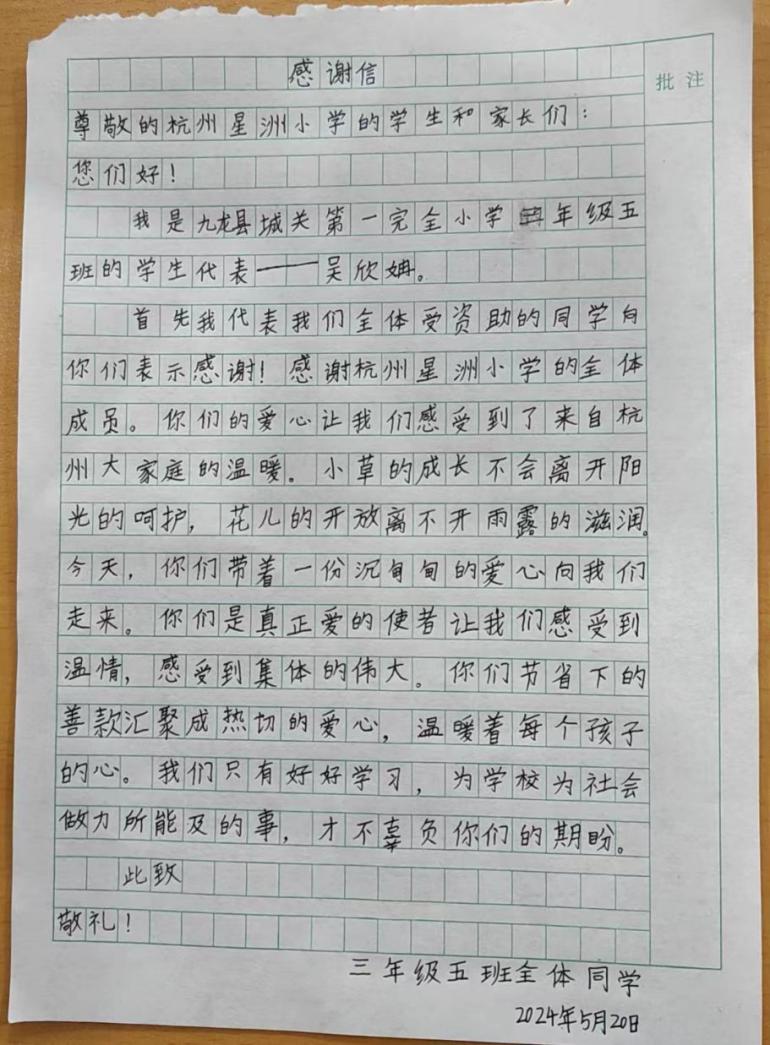 感谢信
批注
尊敬的杭州星洲小学的学生和家长们：
您们好！
我是九龙县城关第一完全小学三年级五
班的学生代表——吴欣姌。
首先我代表我们全体受资助的同学向
你们表示感谢！感谢杭州星洲小学的全体
成员。你们的爱心让我们感受到了来自杭
州大家庭的温暖。小草的成长不会离开阳
光的呵护，花儿的开放离不开雨露的滋润。
今天，你们带着一份沉甸甸的爱心向我们
走来。你们是真正爱的使者让我们感受到
温情，感受到集体的伟大。你们节省下的
善款汇聚成热切的爱心，温暖着每个孩子
的心。我们只有好好学习，为学校为社会
做力所能及的事，才不辜负你们的期盼。
此致
敬礼！
三年级五班全体同学
2024年5月20日